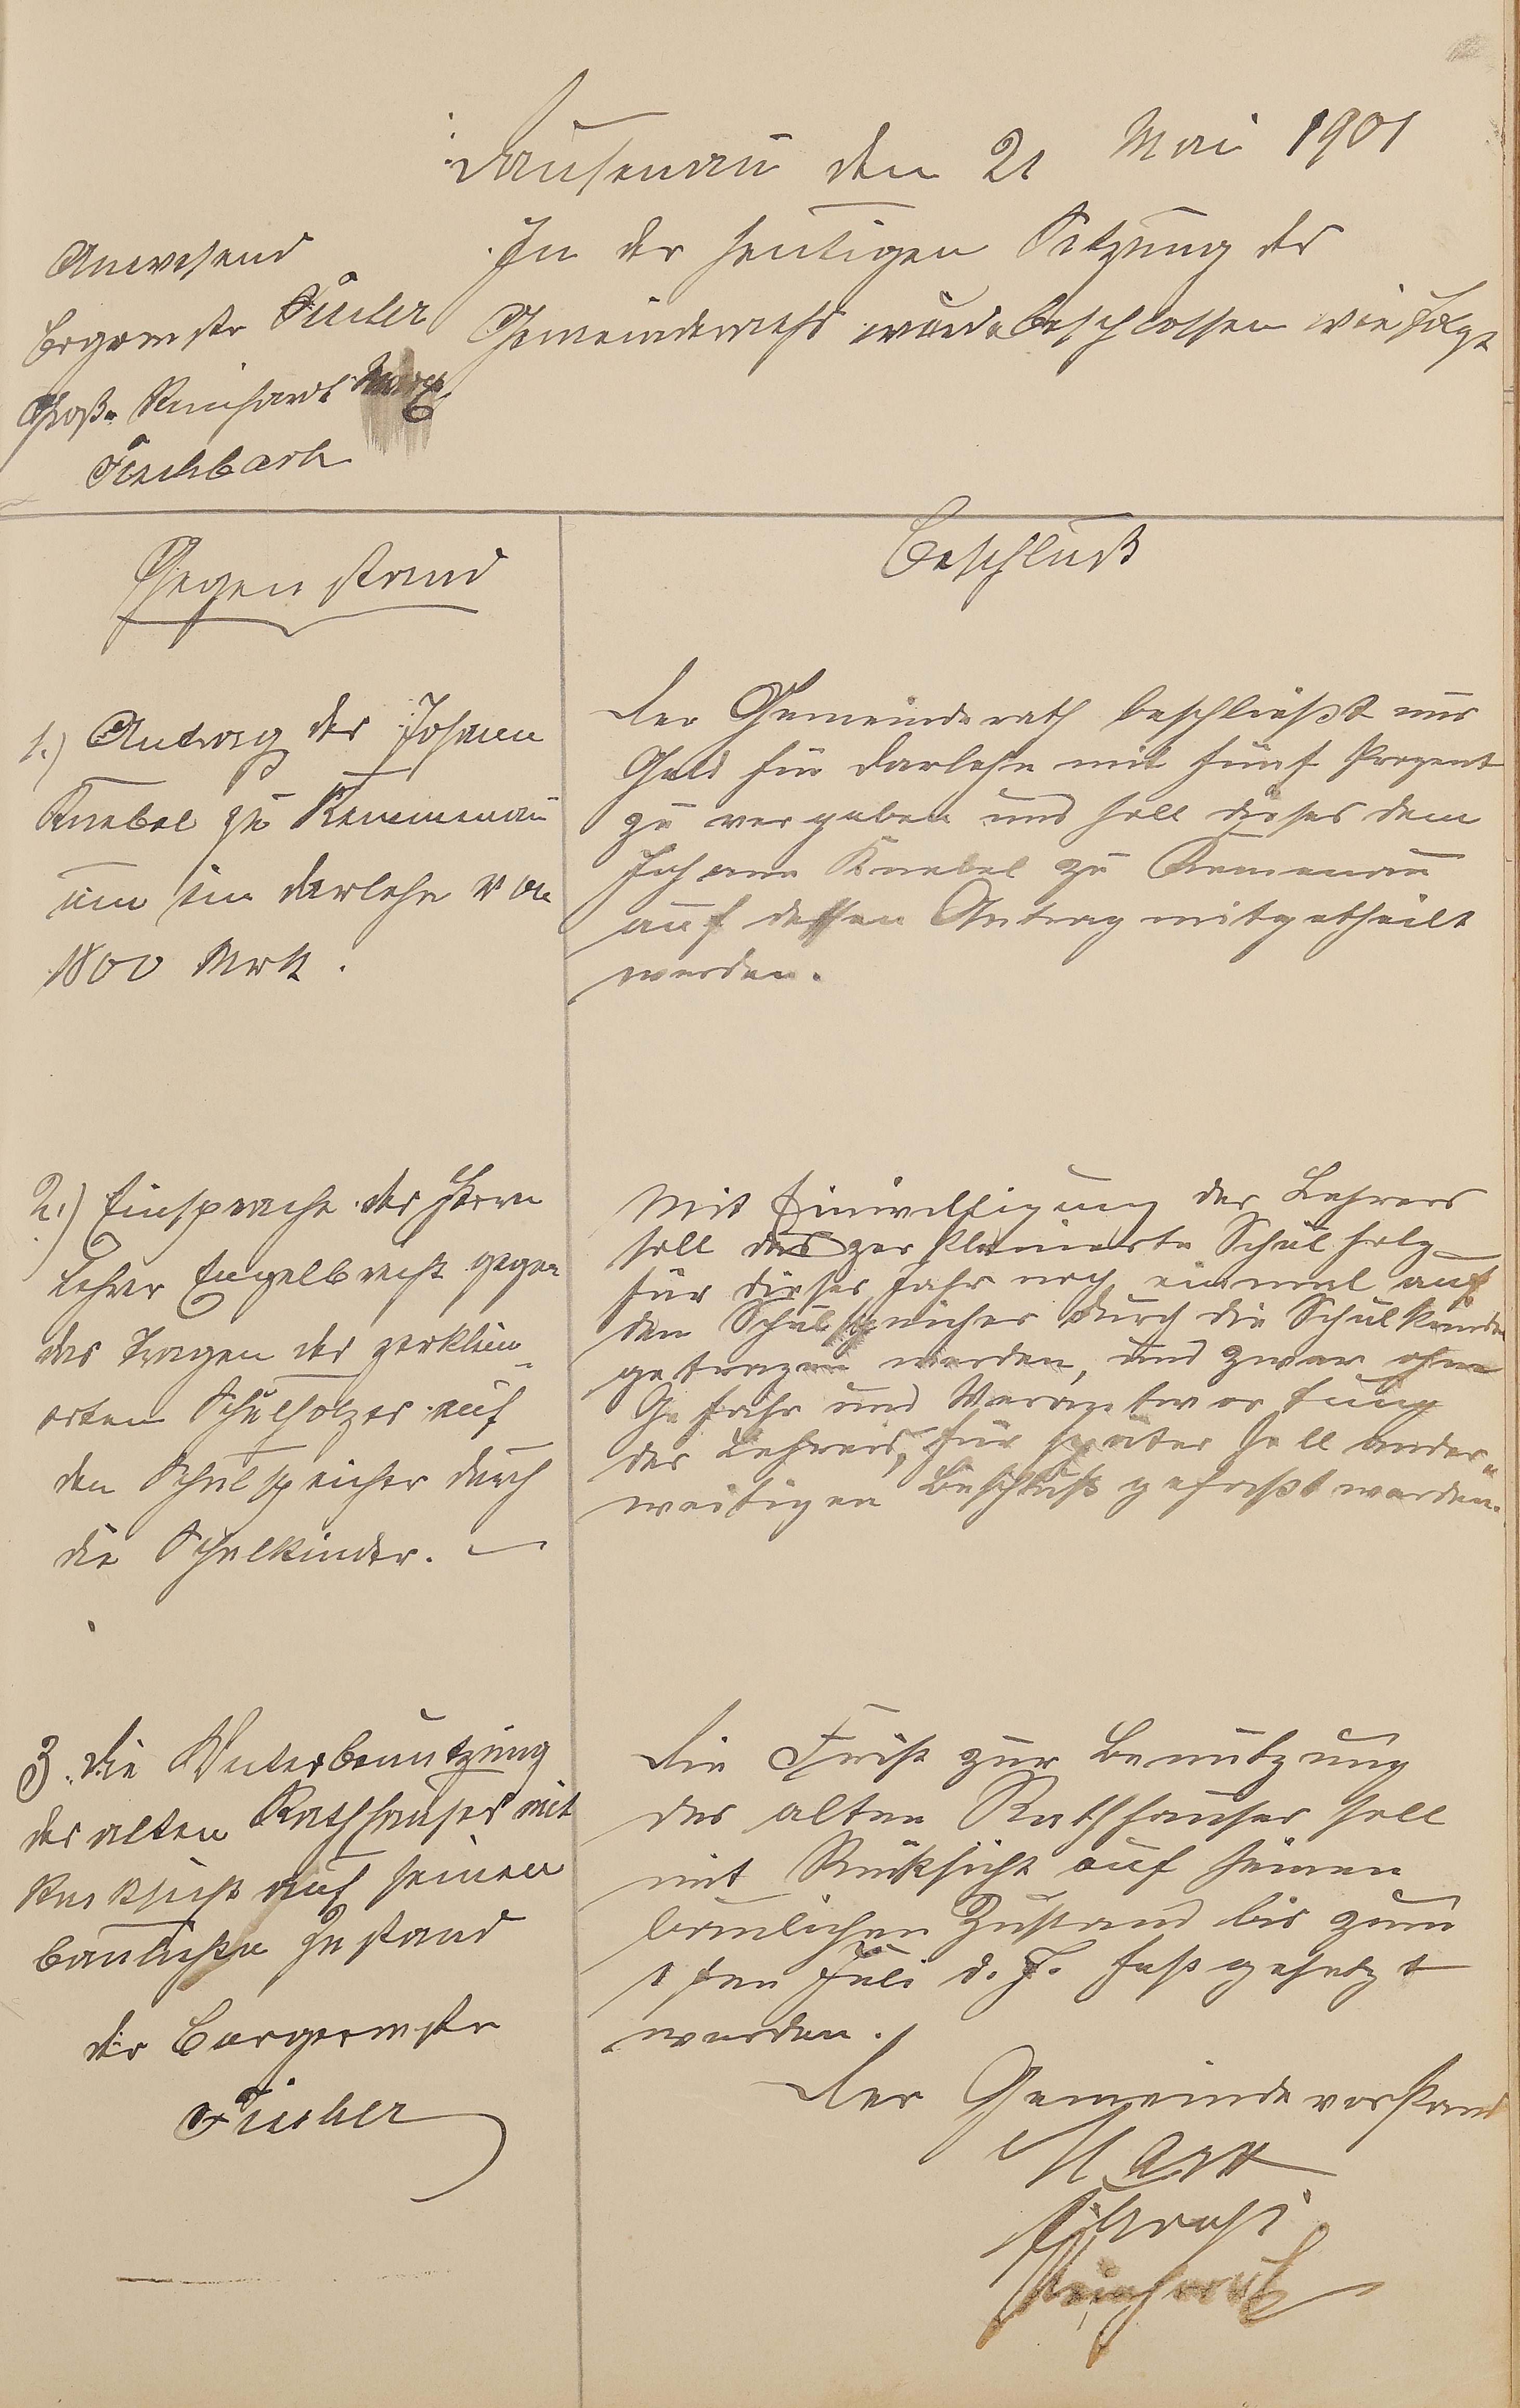 Dausenau den 21 Mai 1901
Anwesend
Brgrmstr Fischer
Groß. Reinhardt Marx
Fischbach
In der heutigen Sitzung des
Gemeinderaths wurde beschlossen wie folgt
Gegenstand
1.) Antrag des Johann
Knebel zu Kemmenau
um ein Darlehn von
1800 Mrk.
Beschluß
Der Gemeinderath beschließt nur
Geld für Darlehn mit fünf Prozent
zu vergeben und soll dieses dem
Johann Knebel zu Kemenau
auf dessen Antrag mitgetheilt
werden.
2.) Einsprache des Herrn
Lehrer Engelbrecht gegen
das Tragen des zerklein-
erten Schulholzes auf
den Schulspeicher durch
die Schulkinder. —
Mit Einwilligung des Lehrers
soll das zerkleinerte Schulholz
für dieses Jahr noch einmal auf
den Schulspeicher durch die Schulkinder
getragen werden, und zwar ohne
Gefahr und Verantwortung
des Lehrers, für später soll ander-
weitigen Beschluß gefaßt werden.
3. Die Weiterbenutzung
des alten Rathhauses mit
Rücksicht auf seinen
baulichen Zustand
der Bürgermstr
Fischer
Die Frist zur Benutzung
des alten Rathhauses soll
mit Rücksicht auf seinen
baulichen Zustand bis zum
1ten Juli d. J. festgesetzt
werden.
Der Gemeindevorstand
Marx
Reinhardt